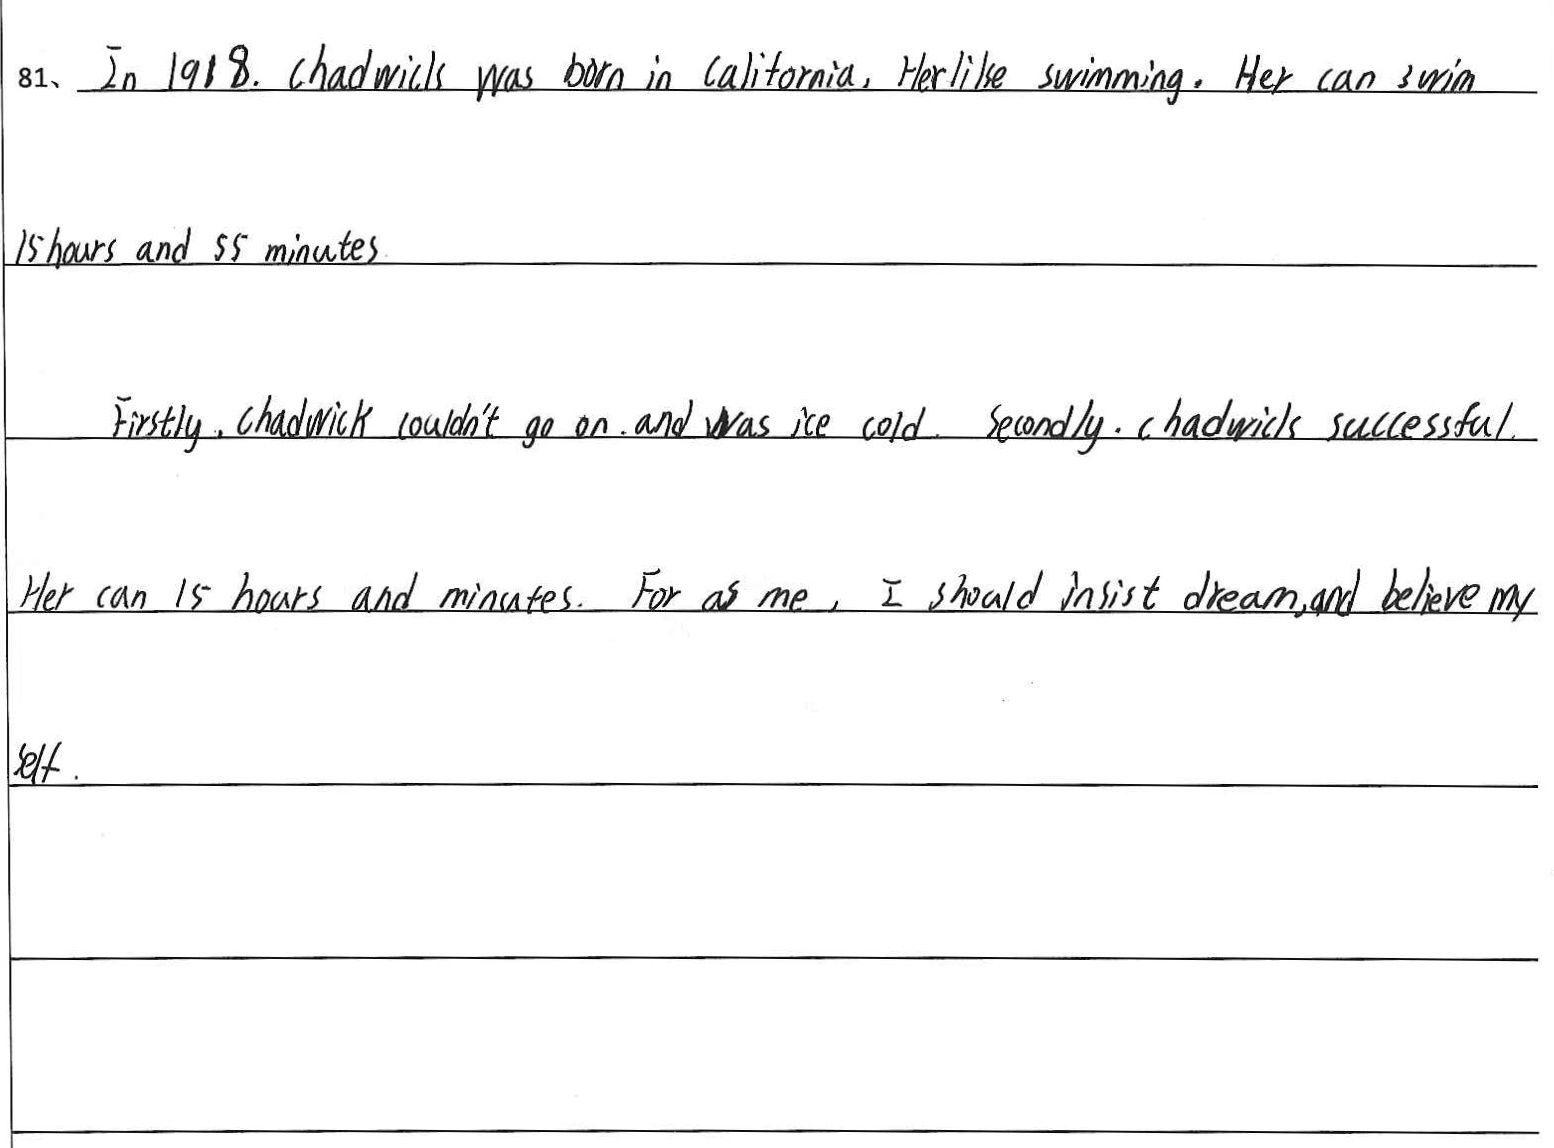 81、 In 1918. Chadwick was born in California, Her like swimming. Her can swim
15 hours and 55 minutes.
Firstly, Chadwick couldn't go on. and was ice cold. Secondly. chadwick successful.
Her can 15 hours and minutes. For as me, I should insist dream, and believe my
self.